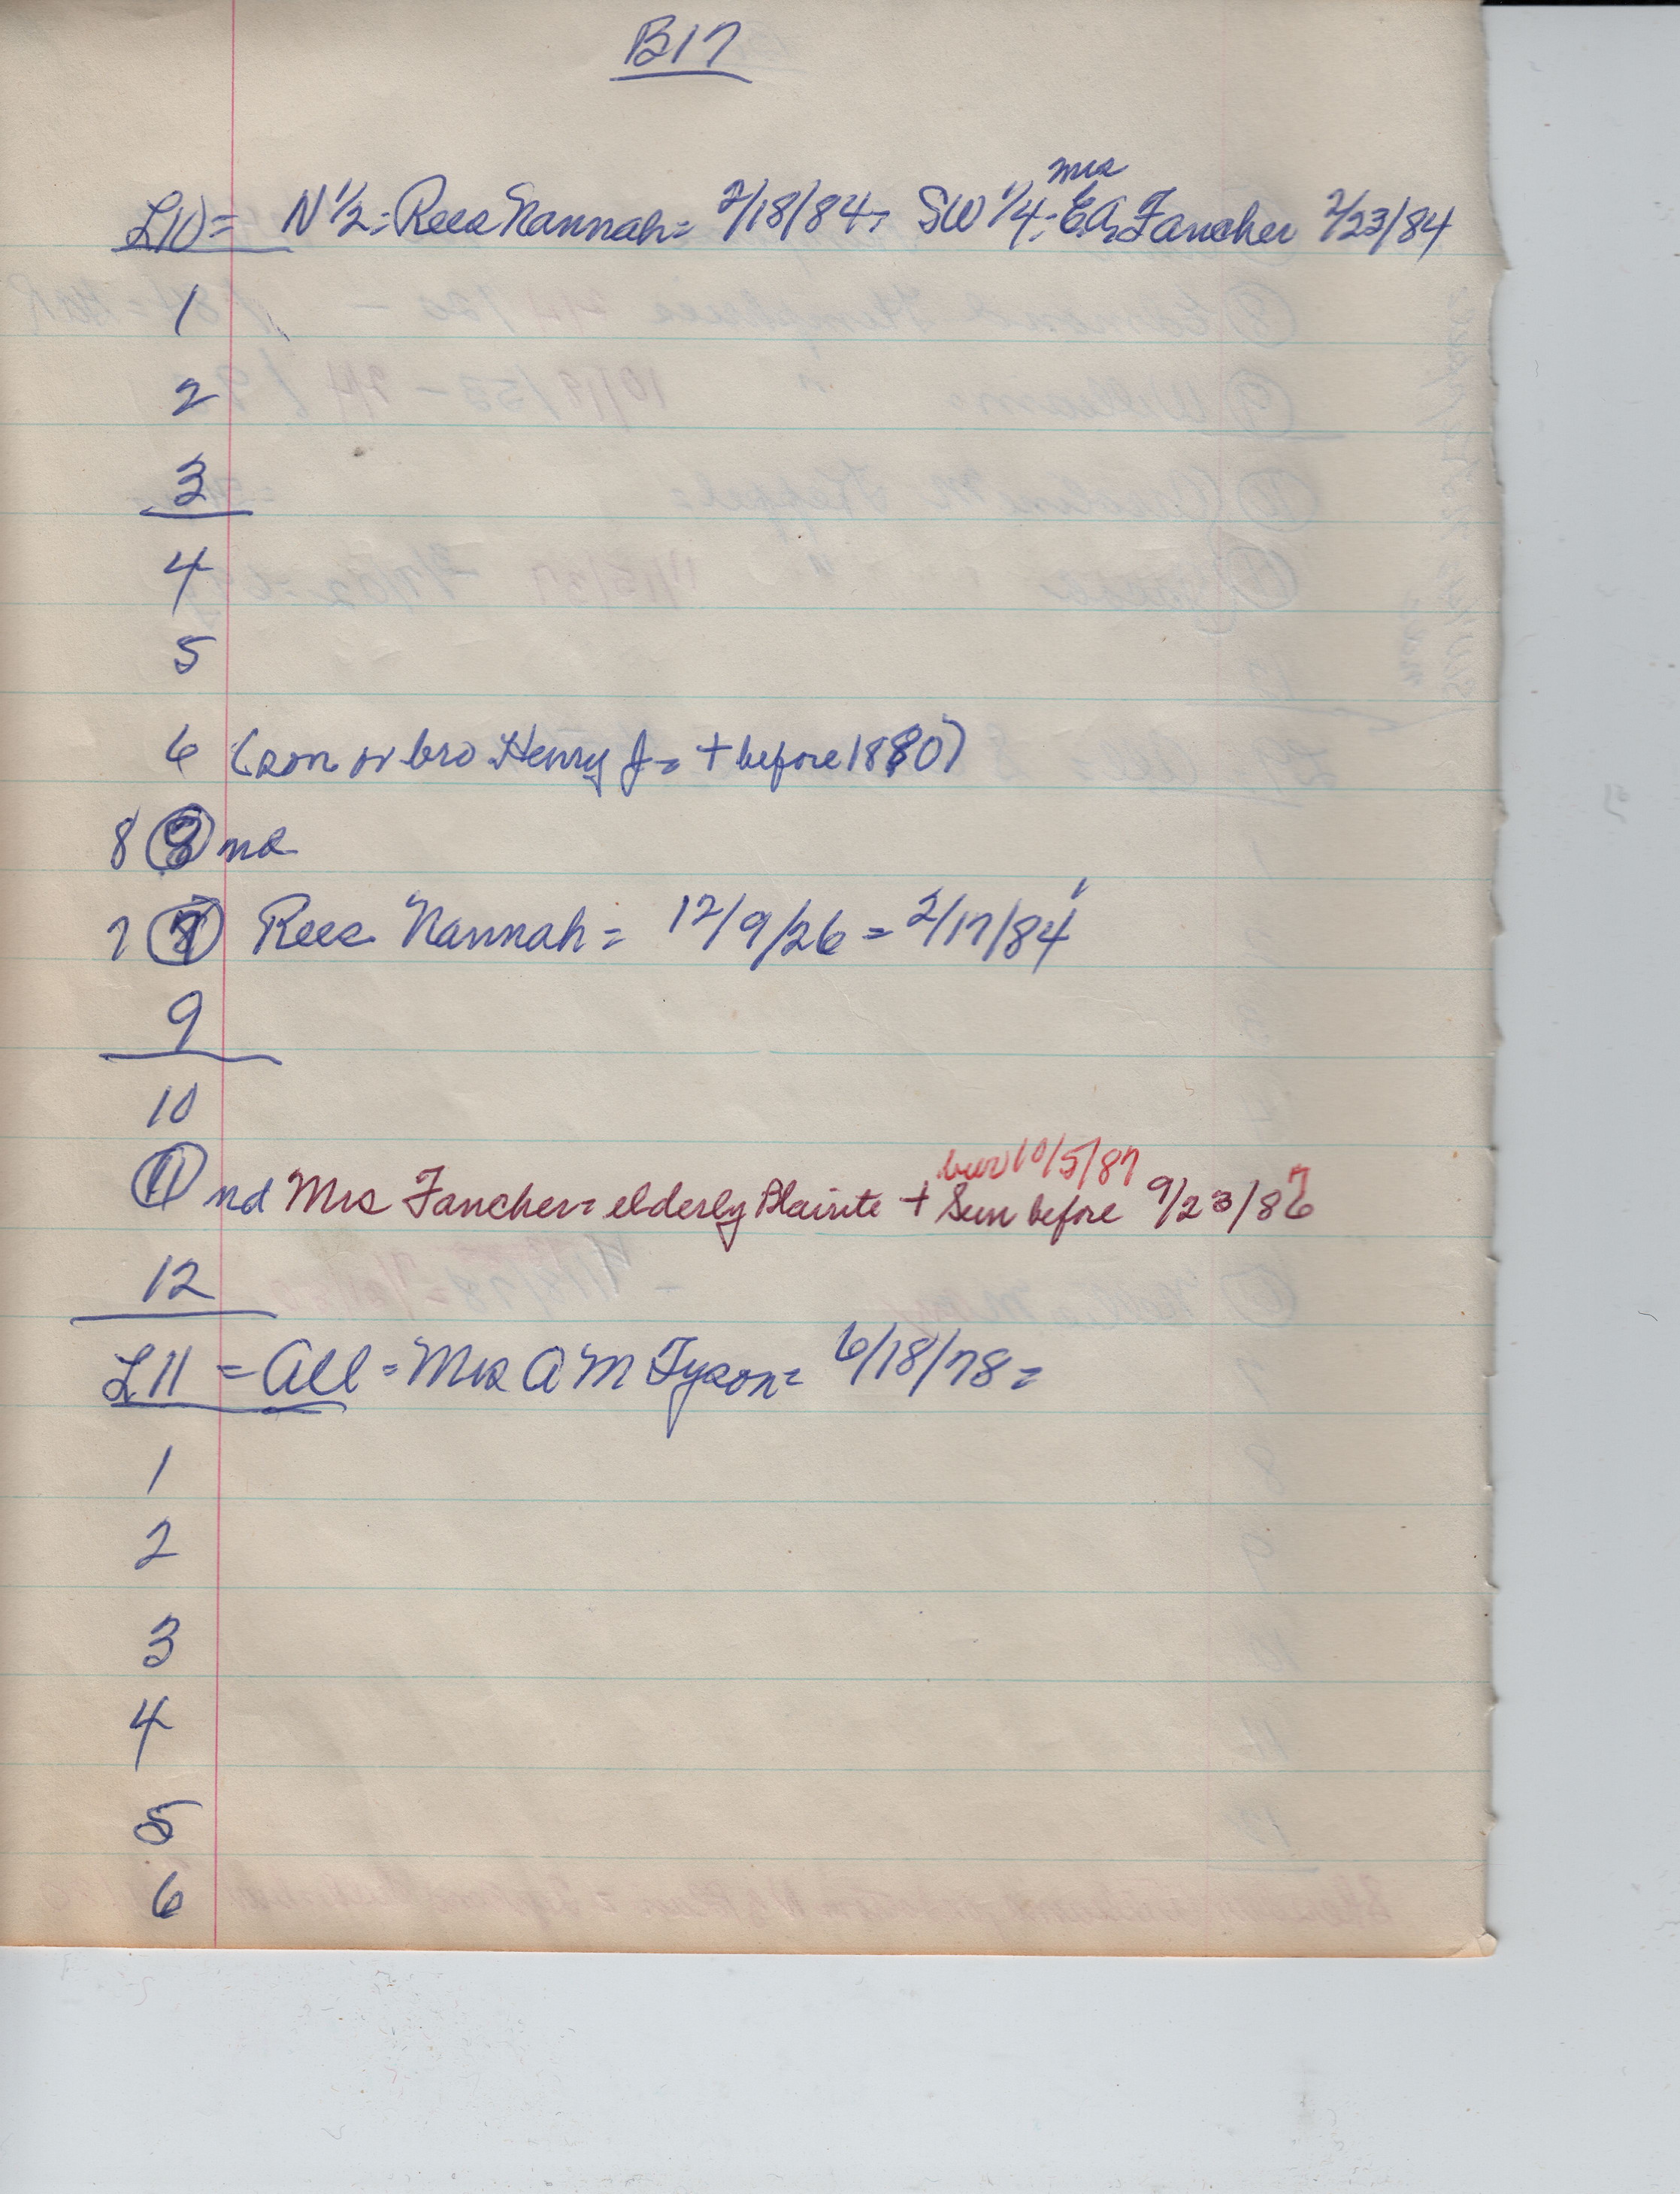 B17
L10 = N 1/2 = Rees Nannah = 2/18/84, SW 1/4 = Mrs E A Fancher 2/23/84
1
2
3
4
5
6 (son or bro Henry J = + before 1880)
8 8 nd
7 7 Rees Nannah = 12/9/26 = 2/17/84
9
10
bur 10/5/87
11 nd Mrs Fancher = elderly Blairite + Sun before 9/23/87
12
L11 = All = Mrs A M Tyson = 6/18/78 =
1
2
3
4
5
6